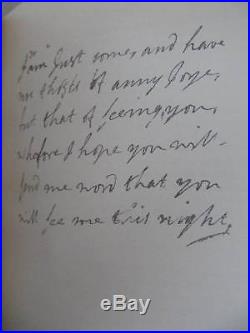 I am Just come, and have
no thots of anny Joye,
but that of seeing you,
wherfore I hope you will
send me word that you
will see me this night
ebay